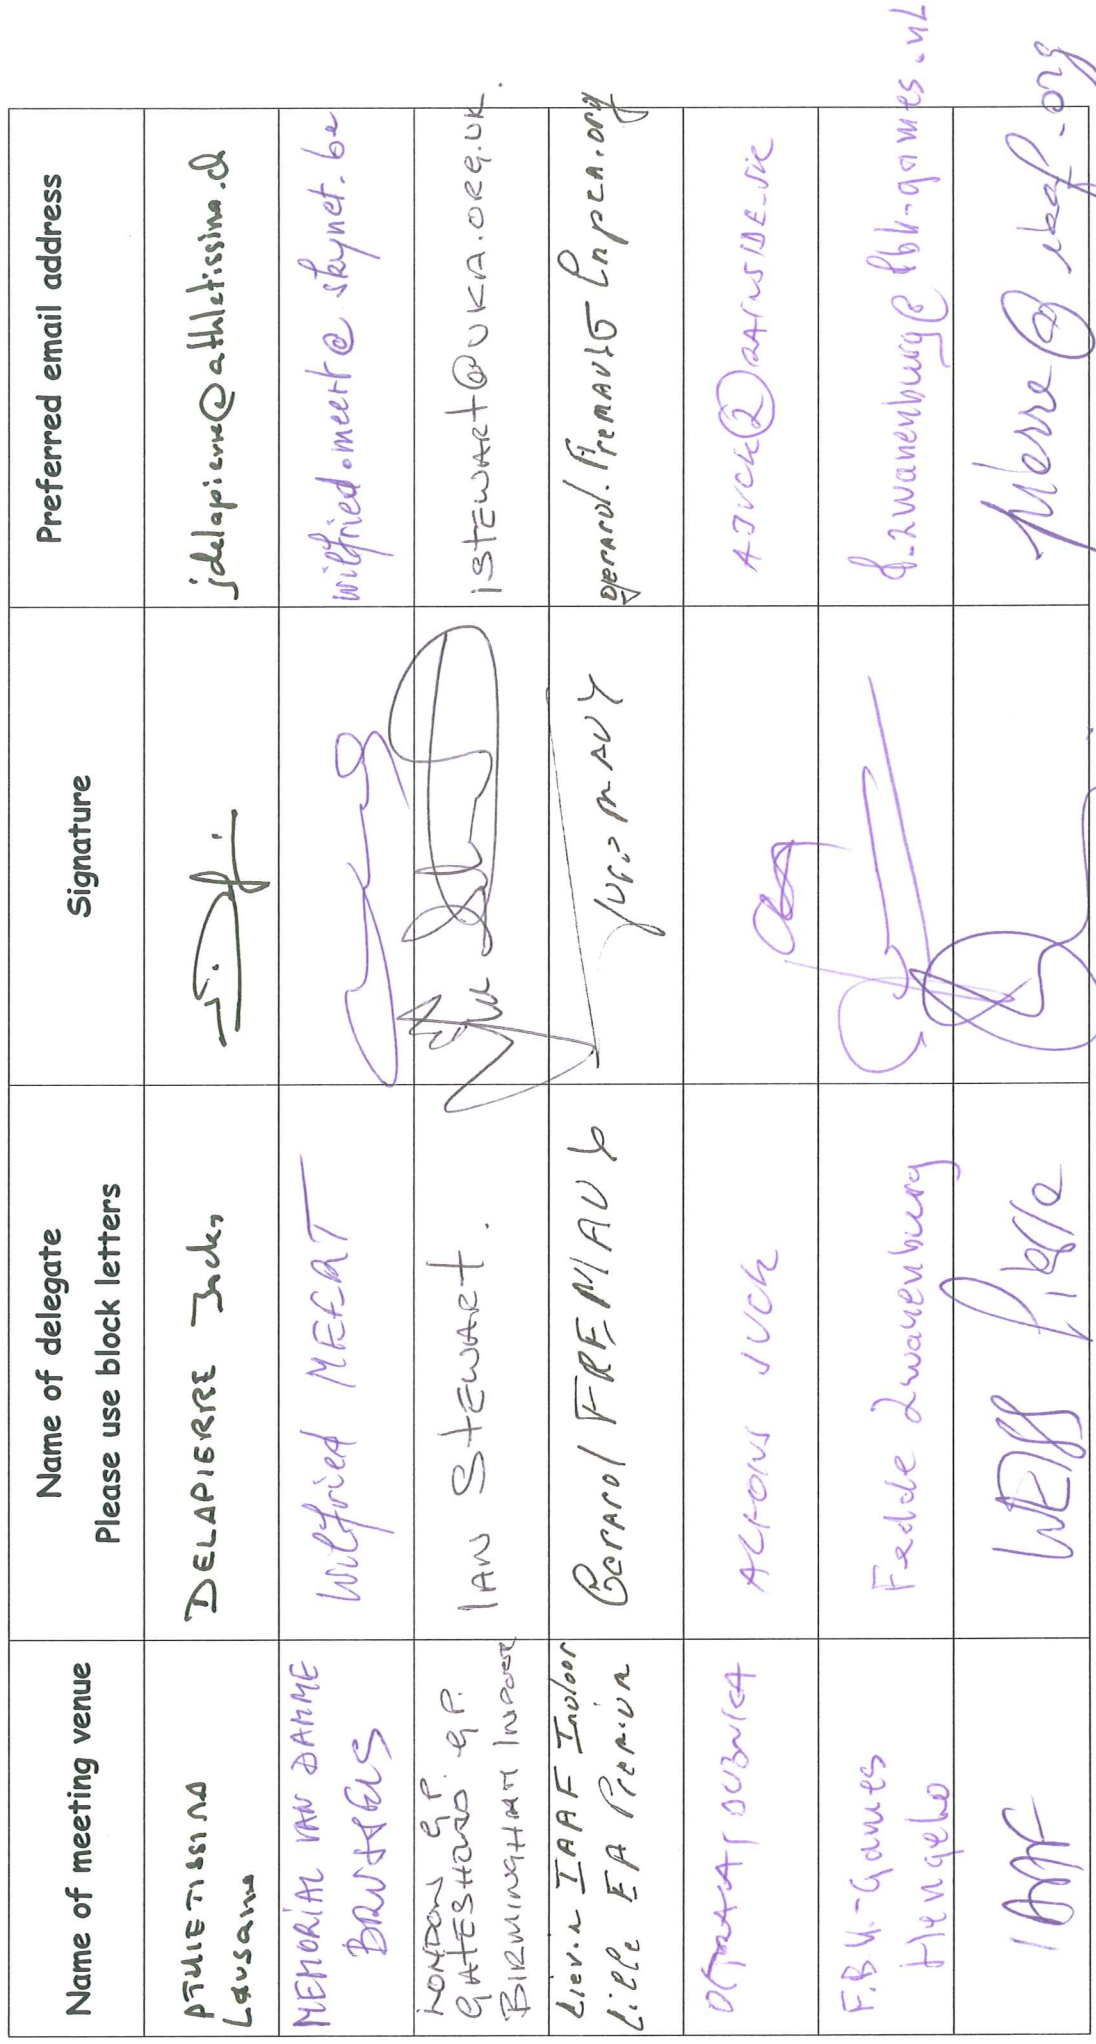 Name of meeting venue
Name of delegate
Please use block letters
Signature
Preferred email address
ATHLETISSIMA
Lausanne
DELAPIERRE Jacky
jdelapierre@athletissima.ch
MEMORIAL VAN DAMME
BRUSSELS
Wilfried MEERT
wilfried.meert@skynet.be
LONDON G.P.
GATESHEAD G.P.
BIRMINGHAM INDOOR
IAN STEWART.
ISTEWART@UKA.ORG.UK.
Lievin IAAF Indoor
Lille EA Premium
Gerard FREMAUX
ALFONS JUCK
F.B.K.-Games
Hengelo
Fedde Zwanenburg
f.zwanenburg@fbk-games.nl
IAAF
WEISS Pierre
pierre@iaaf.org